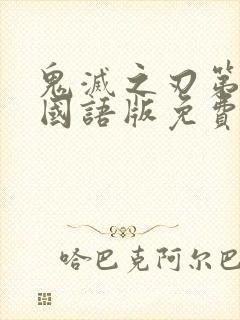 鬼滅之刃第
國語版免費
哈巴克阿尔巴